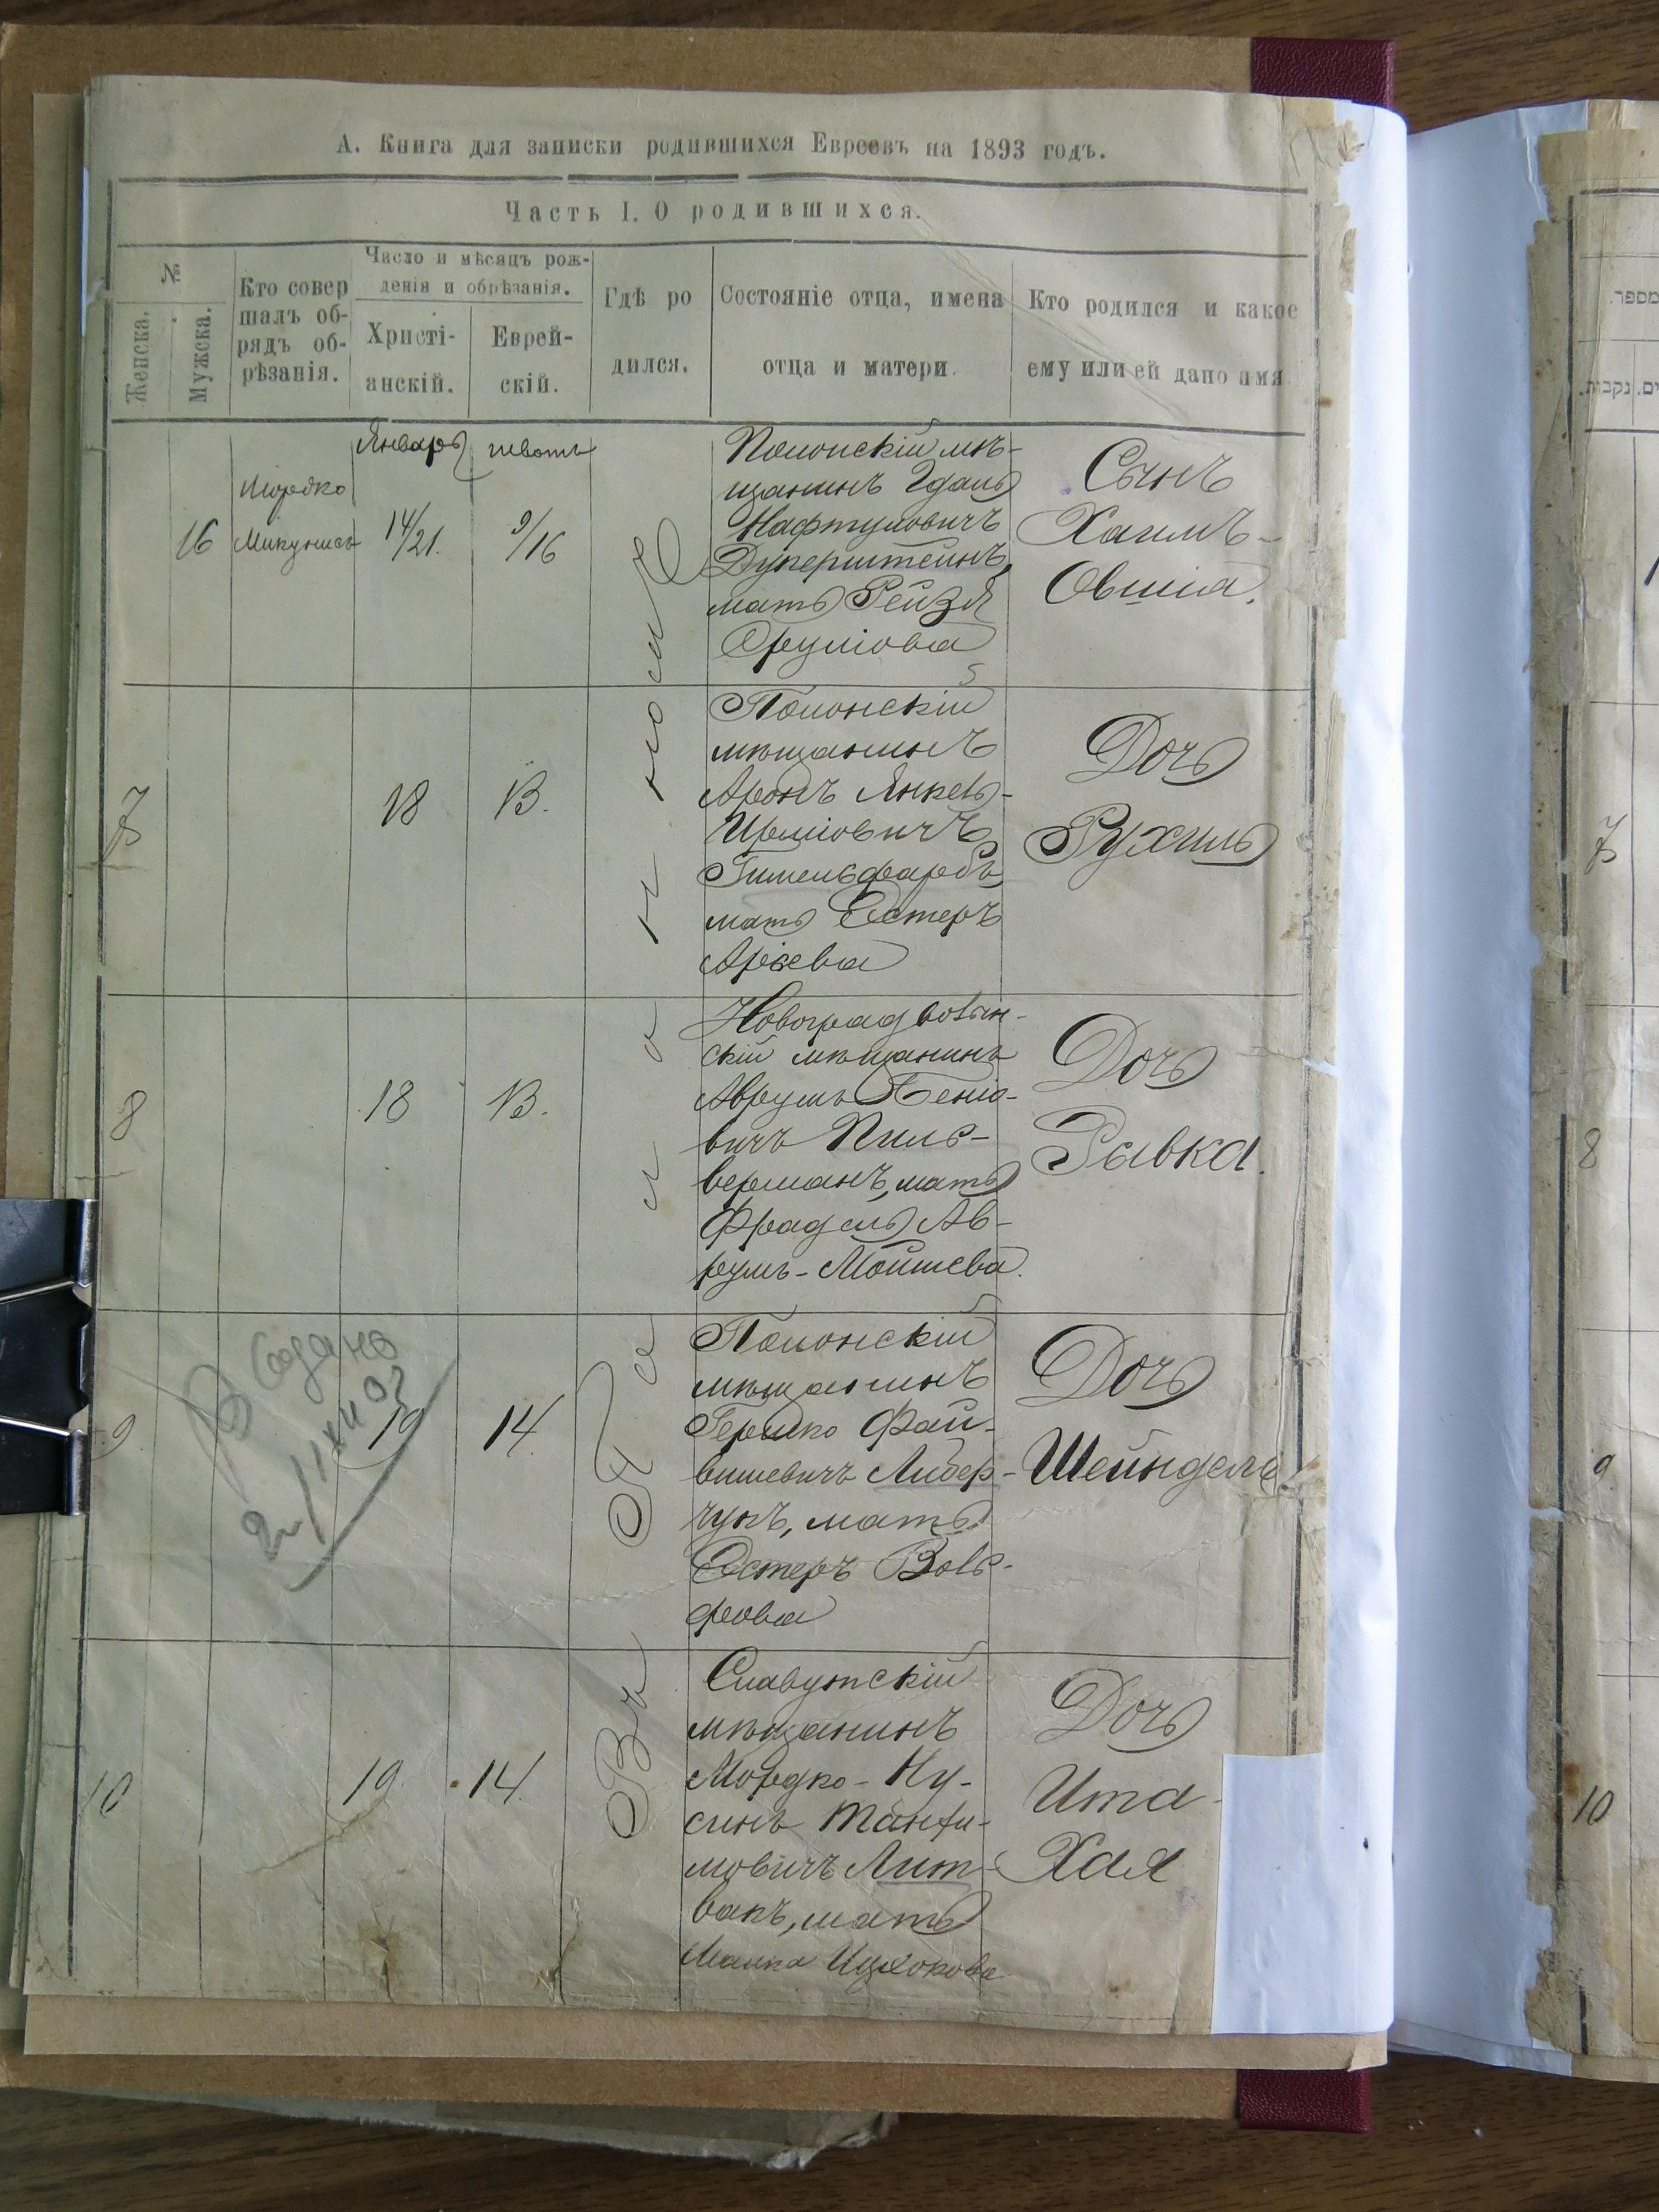 А. Книга для записки родившихся Евреевъ на 1893 годъ.
Часть I. О родившихся.
№
Женска.
Мужска.
Кто совер
шалъ об-
рядъ об-
рѣзанія.
Число и мѣсяцъ рож-
денія и обрѣзанія.
Христі-
анскій.
Еврей-
скій.
Гдѣ ро
дился.
Состояніе отца, имена
отца и матери.
Кто родился и какое
ему или ей дано имя
16
Мордко
Январь
14/21.
9/16
Полонскій мѣ-
щанинъ Гдаль
Нафтуловичъ
мать Рейзя
Сруліова
Сынъ
Хаимъ-
Овшіа.
7
18
13.
Полонскій
мѣщанинъ
Аронъ Янкель-
Гимельфарбъ,
мать Естеръ
Аріева
Дочь
Рухиль
8
18
13.
Новоградволын-
скій мѣщанинъ
Аврумъ Беніо-
вичъ Пиль-
верманъ, мать
Фрадель Ав-
румъ-Мойшева.
Дочь
Рывка.
9
19
14.
Полонскій
мѣщанинъ
Гершко Фай-
вишевичъ Либер-
чукъ, мать
Естеръ Воль-
фова
Дочь
Шейндель
10
19
14.
Славутскій
мѣщанинъ
Мордко-Ну-
синъ Танхи-
мовичъ Лит-
вакъ, мать
Малка Ицхокова
Дочь
Ита-
Хая
Въ
מספר.
נקבות.
7
8
9
10